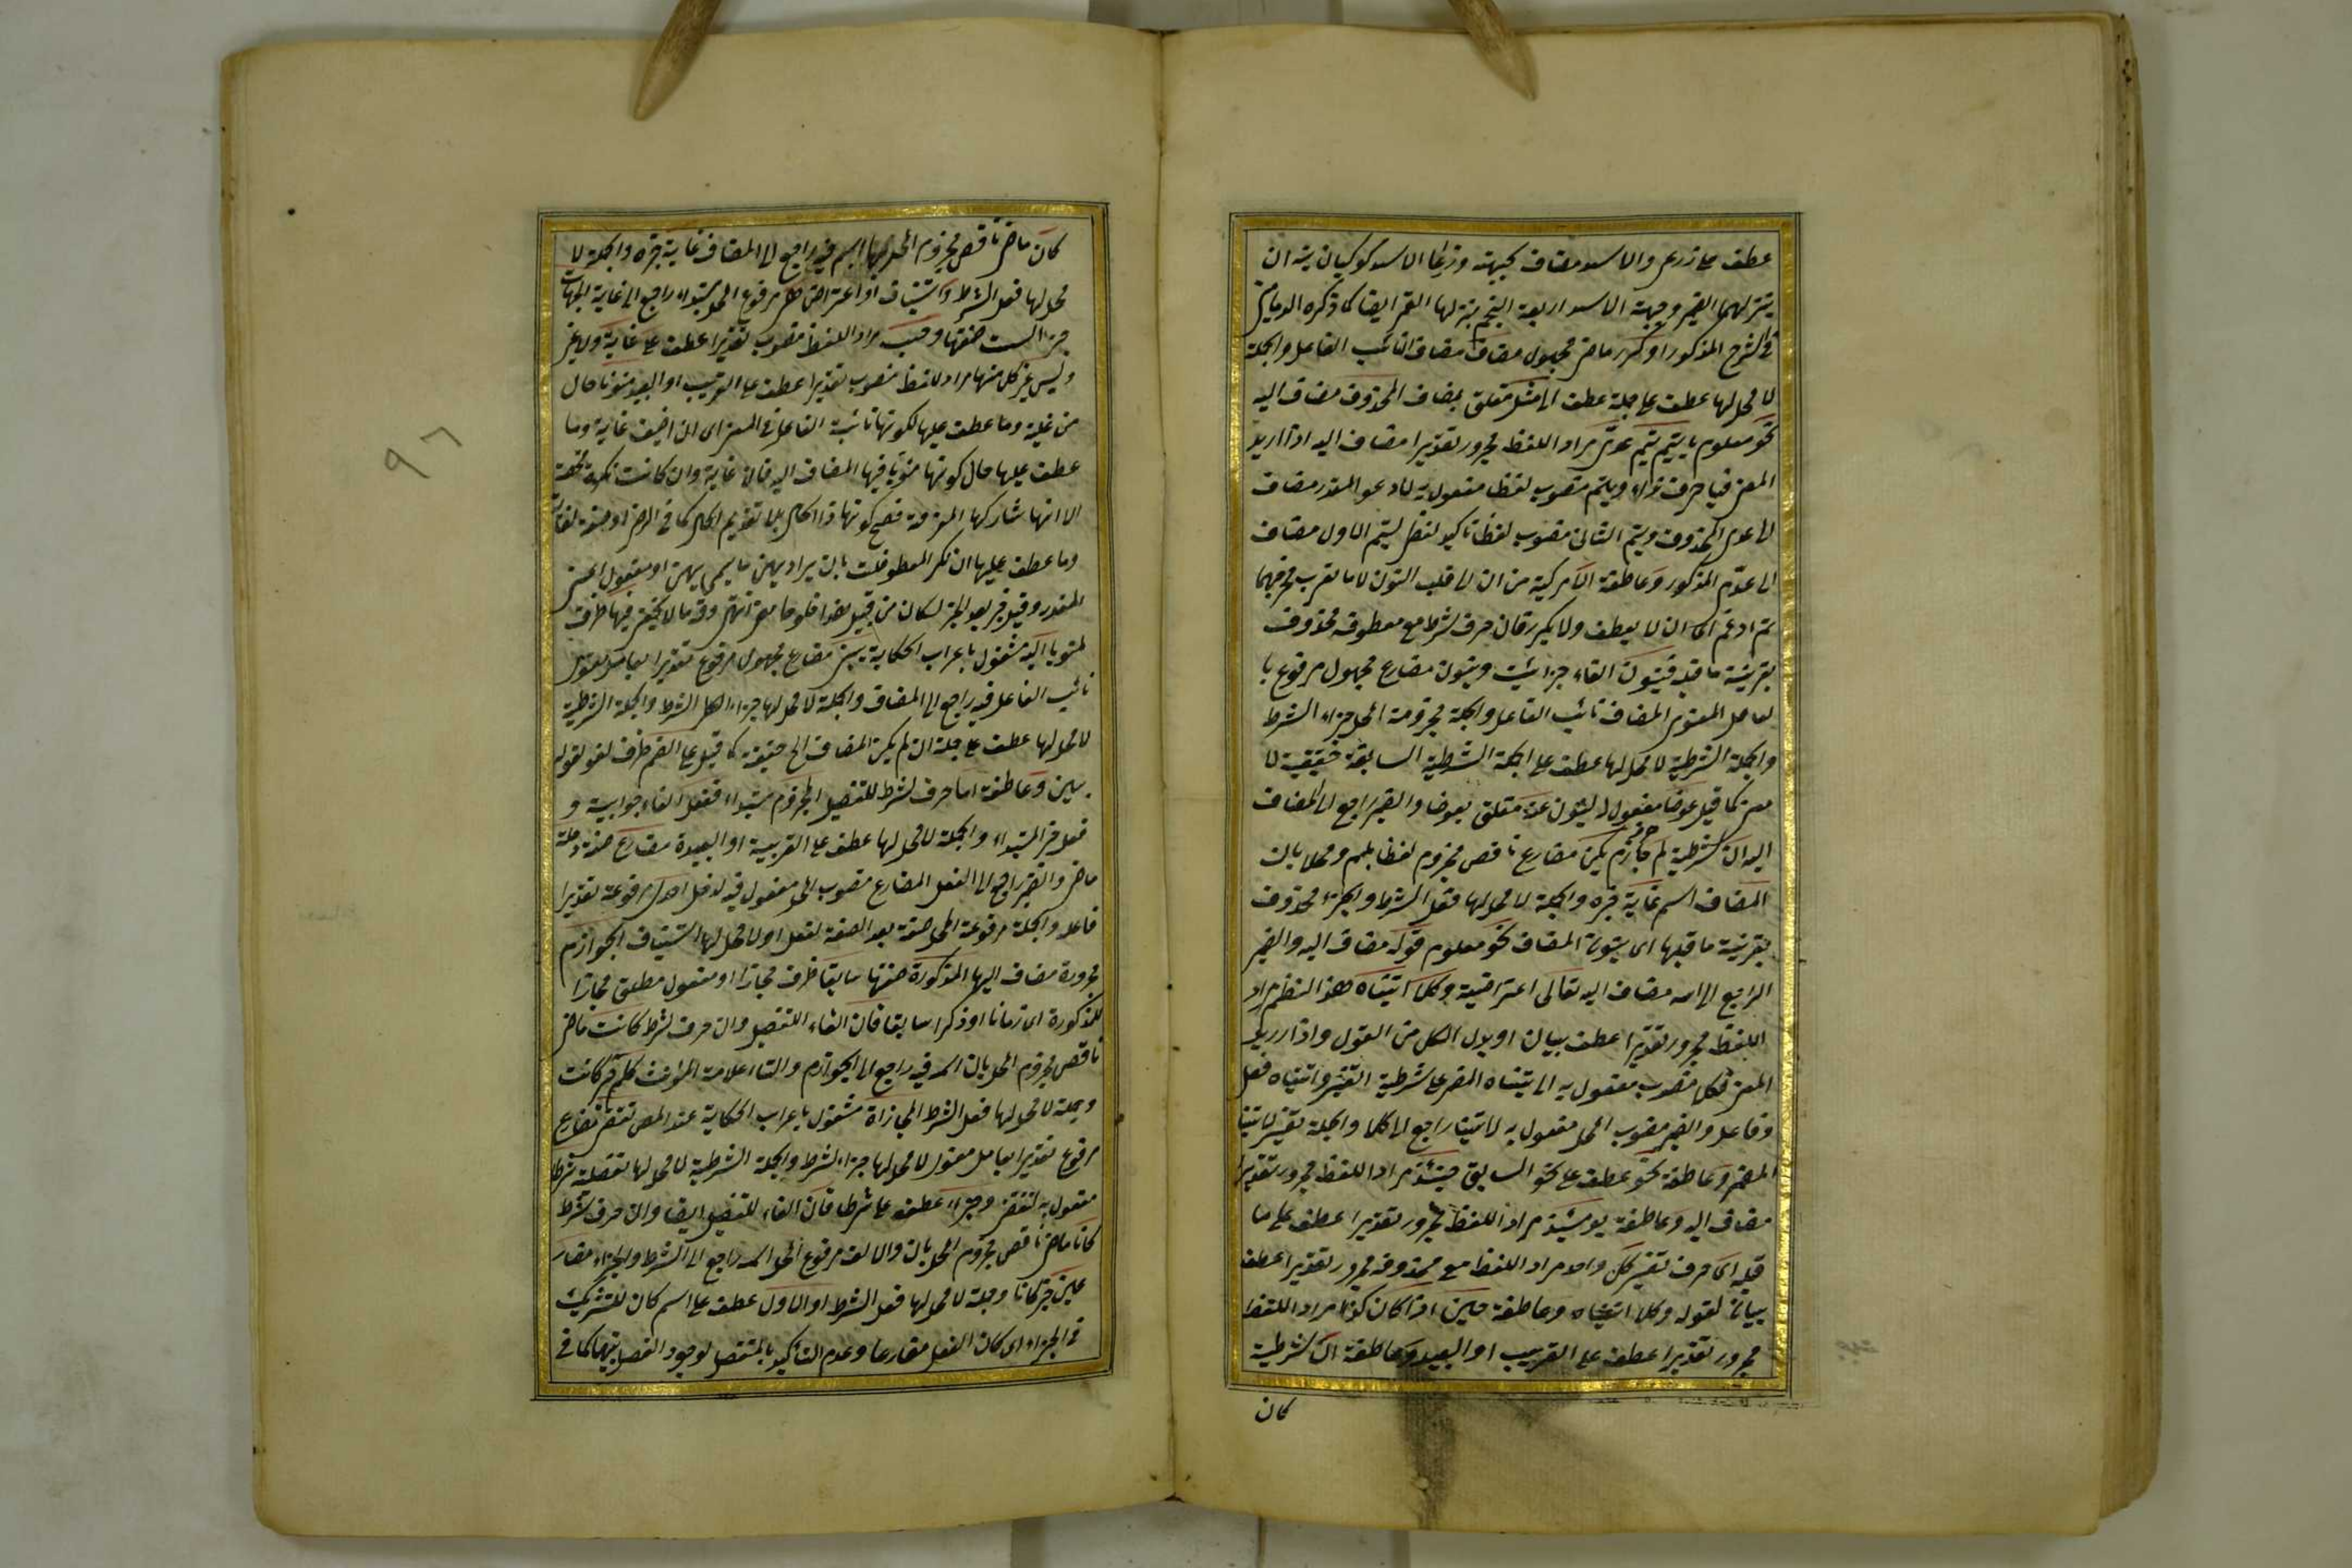 عطف على ذراعى والاسد مضاف كجبهة وذراعا الاسد كوكبان نيران
ينزلهما القمر وجبهة الاسد اربعة انجم ينزلها القمر ايضا كما ذكره الدمامينى
فى الشرح المذكور او كرر ماض مجهول مضاف مضاف نائب الفاعل والجملة
لا محل لها عطف على جملة عطف الا مثل متعلق بمضاف المحذوف مضاف اليه
نحو معلوم يا تيم تيم عدى مراد اللفظ مجرور تقديرا مضاف اليه اذا اريد
المعنى فيا حرف نداء وتيم منصوب لفظا مفعول به لادعو المقدر مضاف
الى عدى المحذوف وتيم الثانى منصوب لفظا تاكيد لفظى لتيم الاول مضاف
الى عدى المذكور وعاطفة الا مركبة من ان لا قلب النون لاما لقرب مخرجهما
ثم ادغم اى ان لا يعطف ولا يكرر فان حرف شرط مع معطوفه محذوف
بقرينة ما قبله فينون الفاء جزائية وينون مضارع مجهول مرفوع با
لعامل المعنوى المضاف نائب الفاعل والجملة مجزومة المحل جزاء الشرط
والجملة الشرطية لا محل لها عطف على الجملة الشرطية السابقة حقيقية لا
معنى كما قيل عوضا مفعول له لينون عنه متعلق بعوضا والضمير راجع الى المضاف
اليه ان شرطية لم جازم يكن مضارع ناقص مجزوم لفظا بلم ومحلا بان
المضاف اسم غاية خبره والجملة لا محل لها فعل الشرط والجزاء محذوف
بقرينة ما قبلها اى ينون المضاف نحو معلوم قوله مضاف اليه والضمير
الراجع الى الله مضاف اليه تعالى اعتراضية وكلا آتيناه هذا النظم مراد
اللفظ مجرور تقديرا عطف بيان او بدل الكل من القول واذا اريد
المعنى فكلا منصوب مفعول به الى آتيناه المضمر على شرطية التفسير وآتيناه فعل
وفاعل والضمير منصوب المحل مفعول به لآتينا راجع الى كلا والجملة تفسير لآتينا
المضمر وعاطفة نحو عطف على نحو السابق حينئذ مراد اللفظ مجرور تقديرا
مضاف اليه وعاطفة يومئذ مراد اللفظ مجرور تقديرا عطف على ما
قبله اى حرف تفسير كل واحد مراد اللفظ مع محذوفه مجرور تقديرا عطف
بيان لقوله وكلا آتيناه وعاطفة حين اذا كان كذا مراد اللفظ
مجرور تقديرا عطف على القريب او البعيد وعاطفة ان شرطية
كان
كان ماض ناقص مجزوم المحل بها اسم فيه راجع الى المضاف غاية خبره والجملة لا
محل لها فعل الشرط واستيناف او اعتراض هى مرفوع المحل مبتداء راجع الى غاية الجهات
خبر الست صفتها وحسب مراد اللفظ منصوب تقديرا عطف على غاية ولا غير
وليس غير كل منها مراد اللفظ منصوب تقديرا عطف على القريب او البعيد منويا حال
من غاية وما عطف عليها لكونها نائبة الفاعل فى المعنى اى ان اضيف غاية وما
عطف عليها حال كونها منويا فيها المضاف اليه فان غاية وان كانت نكرة محضة
الا انها شاركها المعرفة فصح كونها ذا الحال بلا تقديم الحال كما فى الرضى او صفة لغاية
وما عطف عليها ان نكر المعطوفات بان يراد بهن ما يسمى بهن او مفعول اعنى
المقدر وقيل خبر بعد الخبر لكان من قبيل هذا حلو حامض انتهى وفيه ما لا يخفى فيها ظرف
لمنويا اليه مشغول باعراب الحكاية يبنى مضارع مجهول مرفوع تقديرا بعامل معنوى
نائب الفاعل فيه راجع الى المضاف والجملة لا محل لها جزاء الشرط والجملة الشرطية
لا محل لها عطف على جملة ان لم يكن المضاف الخ حقيقة كما قيل على الضم ظرف لغو لقوله
يبنى وعاطفة اما حرف شرط للتفصيل المجزوم مبتداء ففعل الفاء جوابية و
فعل خبر المبتداء والجملة لا محل لها عطف على القريبة او البعيدة مضارع صفة دخله
ماض والضمير راجع الى الفعل المضارع منصوب المحل مفعول فيه لدخل احدى مرفوعة تقديرا
فاعله والجملة مرفوعة المحل صفة بعد الصفة لفعل او لا محل لها استيناف الجوازم
مجرورة مضاف اليها المذكورة صفتها سابقا ظرف مجازا او مفعول مطلق مجازا
للمذكورة اى زمانا او ذكرا سابقا فان الفاء للتفصيل وان حرف شرط كانت ماض
ناقص مجزوم المحل بان اسمه فيه راجع الى الجوازم والتاء علامة المؤنث كلم خبر كانت
وجملة لا محل لها فعل الشرط المجازاة مشغول باعراب الحكاية عند المص تقتضى مضارع
مرفوع تقديرا بعامل معنوى لا محل لها جزاء الشرط والجملة الشرطية لا محل لها تفصيلية شرطا
مفعول به لتقتضى وجزاء عطف على شرطا فان الفاء للتفصيل ايضا وان حرف شرط
كانا ماض ناقص مجزوم المحل بان والالف مرفوع المحل اسمه راجع الى الشرط والجزاء مضار
عين خبر كانا وجملة لا محل لها فعل الشرط او الاول عطف على اسم كان للتشريك
فى الجزاء اى كان الفعل مضارعا وعدم التأكيد بالمنفصل لوجود الفصل بينهما كما فى
٩٦